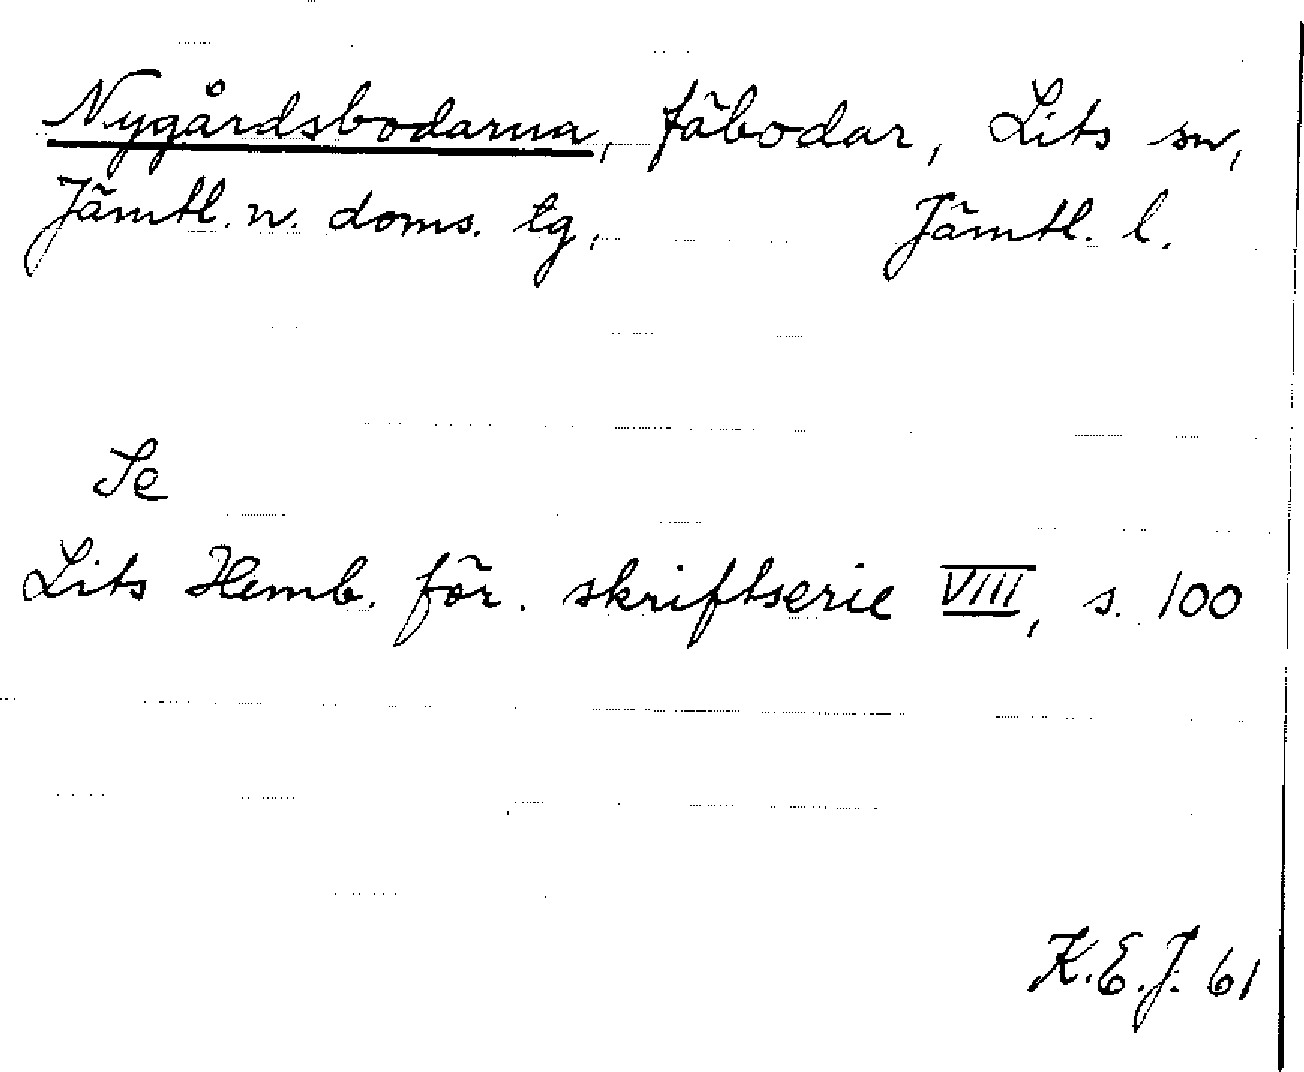 Nygårdsbodarna, fäbodar, Lits sn,
Jämtl. n. doms. tg, Jämtl. l.
Se
Lits Hemb. för. skriftserie VIII, s. 100
K.E.J. 61